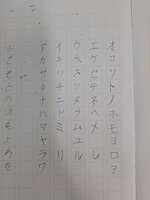 オコソトノホモヨロヲ
エケセテネヘメ レ
ウクスツヌフムユル
イキシチニヒミ リ
アカサタナハマヤラワ
おこそとのほもよろを